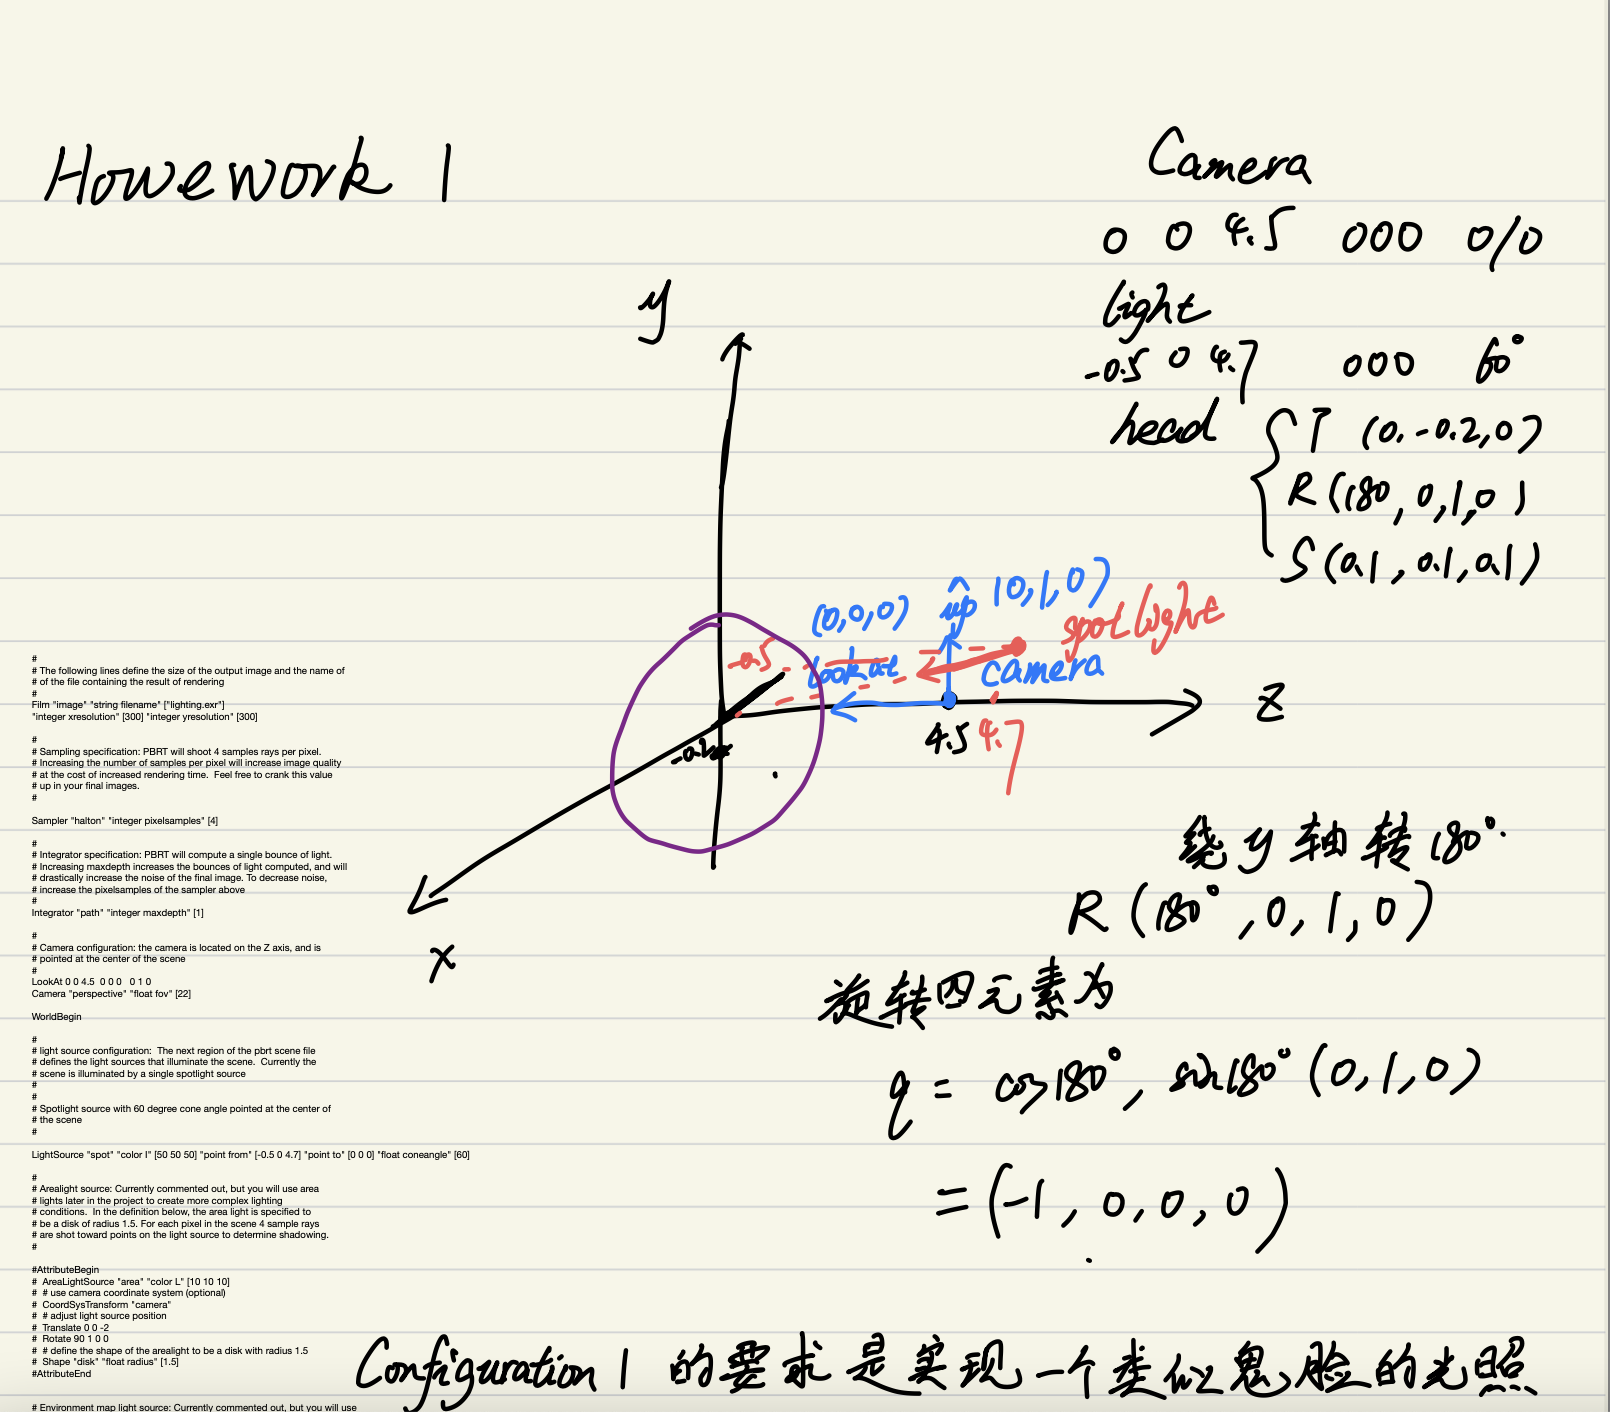 Howework 1
Camera
0 0 4.5 000 0/0
light
-0.5 0 4.7 000 60°
head { T (0.-0.2,0)
R (180,0,1,0)
S (0.1,0.1,0.1)
y
(0,0,0) up (0,1,0)
spotlight
-0.5 lookat camera
z
4.5 4.7
x
绕y轴转180°.
R (180°,0,1,0)
旋转四元素为
q = cos180°, sin180° (0,1,0)
= (-1,0,0,0)
Configuration 1 的要求是实现一个类似鬼脸的光照
#
# The following lines define the size of the output image and the name of
# of the file containing the result of rendering
#
Film "image" "string filename" ["lighting.exr"]
"integer xresolution" [300] "integer yresolution" [300]
#
# Sampling specification: PBRT will shoot 4 samples rays per pixel.
# Increasing the number of samples per pixel will increase image quality
# at the cost of increased rendering time.  Feel free to crank this value
# up in your final images.
#
Sampler "halton" "integer pixelsamples" [4]
#
# Integrator specification: PBRT will compute a single bounce of light.
# Increasing maxdepth increases the bounces of light computed, and will
# drastically increase the noise of the final image. To decrease noise,
# increase the pixelsamples of the sampler above
#
Integrator "path" "integer maxdepth" [1]
#
# Camera configuration: the camera is located on the Z axis, and is
# pointed at the center of the scene
#
LookAt 0 0 4.5  0 0 0   0 1 0
Camera "perspective" "float fov" [22]
WorldBegin
#
# light source configuration:  The next region of the pbrt scene file
# defines the light sources that illuminate the scene.  Currently the
# scene is illuminated by a single spotlight source
#
#
# Spotlight source with 60 degree cone angle pointed at the center of
# the scene
#
LightSource "spot" "color I" [50 50 50] "point from" [-0.5 0 4.7] "point to" [0 0 0] "float coneangle" [60]
#
# Arealight source: Currently commented out, but you will use area
# lights later in the project to create more complex lighting
# conditions.  In the definition below, the area light is specified to
# be a disk of radius 1.5. For each pixel in the scene 4 sample rays
# are shot toward points on the light source to determine shadowing.
#
#AttributeBegin
#  AreaLightSource "area" "color L" [10 10 10]
#  # use camera coordinate system (optional)
#  CoordSysTransform "camera"
#  # adjust light source position
#  Translate 0 0 -2
#  Rotate 90 1 0 0
#  # define the shape of the arealight to be a disk with radius 1.5
#  Shape "disk" "float radius" [1.5]
#AttributeEnd
# Environment map light source: Currently commented out, but you will use